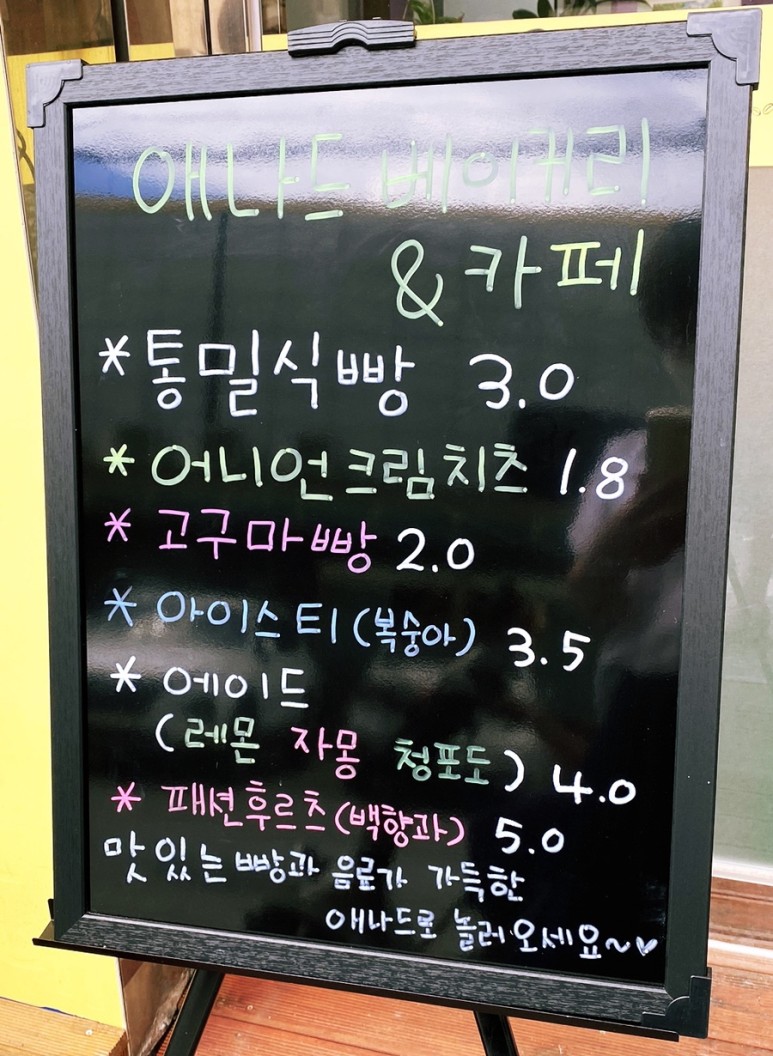 애나드 베이커리
& 카페
* 통밀식빵 3.0
* 어니언크림치츠 1.8
* 고구마빵 2.0
* 아이스티(복숭아) 3.5
* 에이드
(레몬 자몽 청포도) 4.0
* 패션후르츠(백향과) 5.0
맛있는 빵과 음료가 가득한
애나드로 놀러오세요~♥